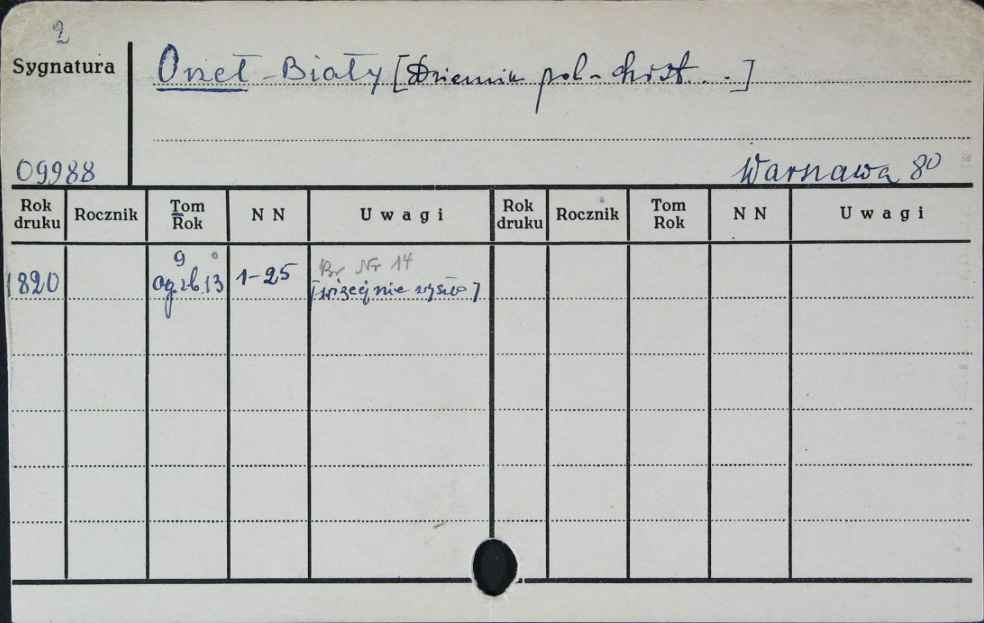 2
Sygnatura
Orzeł-Biały [Dziennik pol-hist...]
09988
Warszawa 80
Rok druku Rocznik Tom Rok N N Uwagi Rok druku Rocznik Tom Rok N N Uwagi
9
Br Nr 14
1820 og. zb. 13 1-25 [więcej nie wyszło]